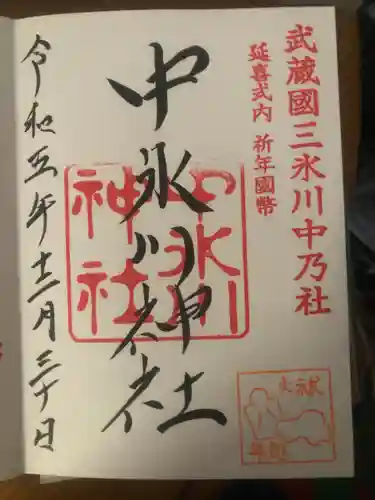 武蔵國三氷川中乃社
延喜式内 祈年國幣
中氷川神社
中氷川
神社
令和五年十二月三十日